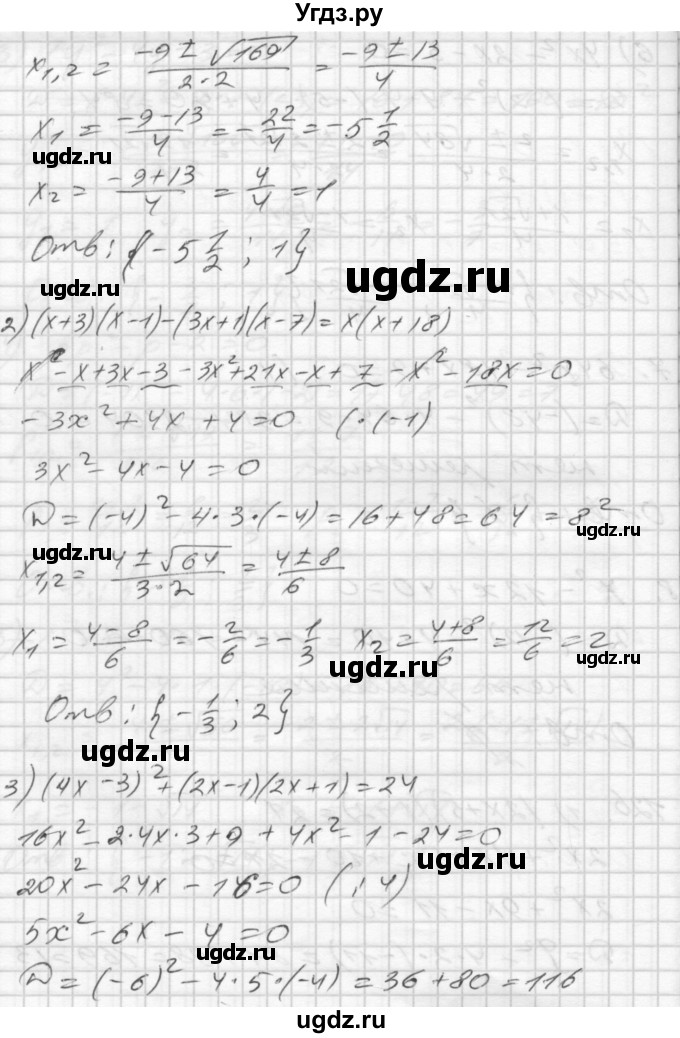 Угдз.ру
x₁,₂ = (-9 ± √169)/(2·2) = (-9 ± 13)/4
x₁ = (-9-13)/4 = -22/4 = -5 1/2
ugdz.ru
x₂ = (-9+13)/4 = 4/4 = 1
Отв: {-5 1/2; 1}
ugdz.ru
ugdz.ru
2) (x+3)(x-1)-(3x+1)(x-7)=x(x+18)
x² - x + 3x - 3 - 3x² + 21x - x + 7 - x² - 18x = 0
-3x² + 4x + 4 = 0 (·(-1)
3x² - 4x - 4 = 0
D = (-4)² - 4·3·(-4) = 16 + 48 = 64 = 8²
ugdz.ru
ugdz.ru
x₁,₂ = (4 ± √64)/(3·2) = (4 ± 8)/6
x₁ = (4-8)/6 = -2/6 = -1/3 x₂ = (4+8)/6 = 12/6 = 2
ugdz.ru
ugdz.ru
Отв: {-1/3; 2}
ugdz.ru
3) (4x-3)² + (2x-1)(2x+1) = 24
16x² - 2·4x·3 + 9 + 4x² - 1 - 24 = 0
ugdz.ru
20x² - 24x - 16 = 0 (:4)
5x² - 6x - 4 = 0
ugdz.ru
D = (-6)² - 4·5·(-4) = 36 + 80 = 116
ugdz.ru